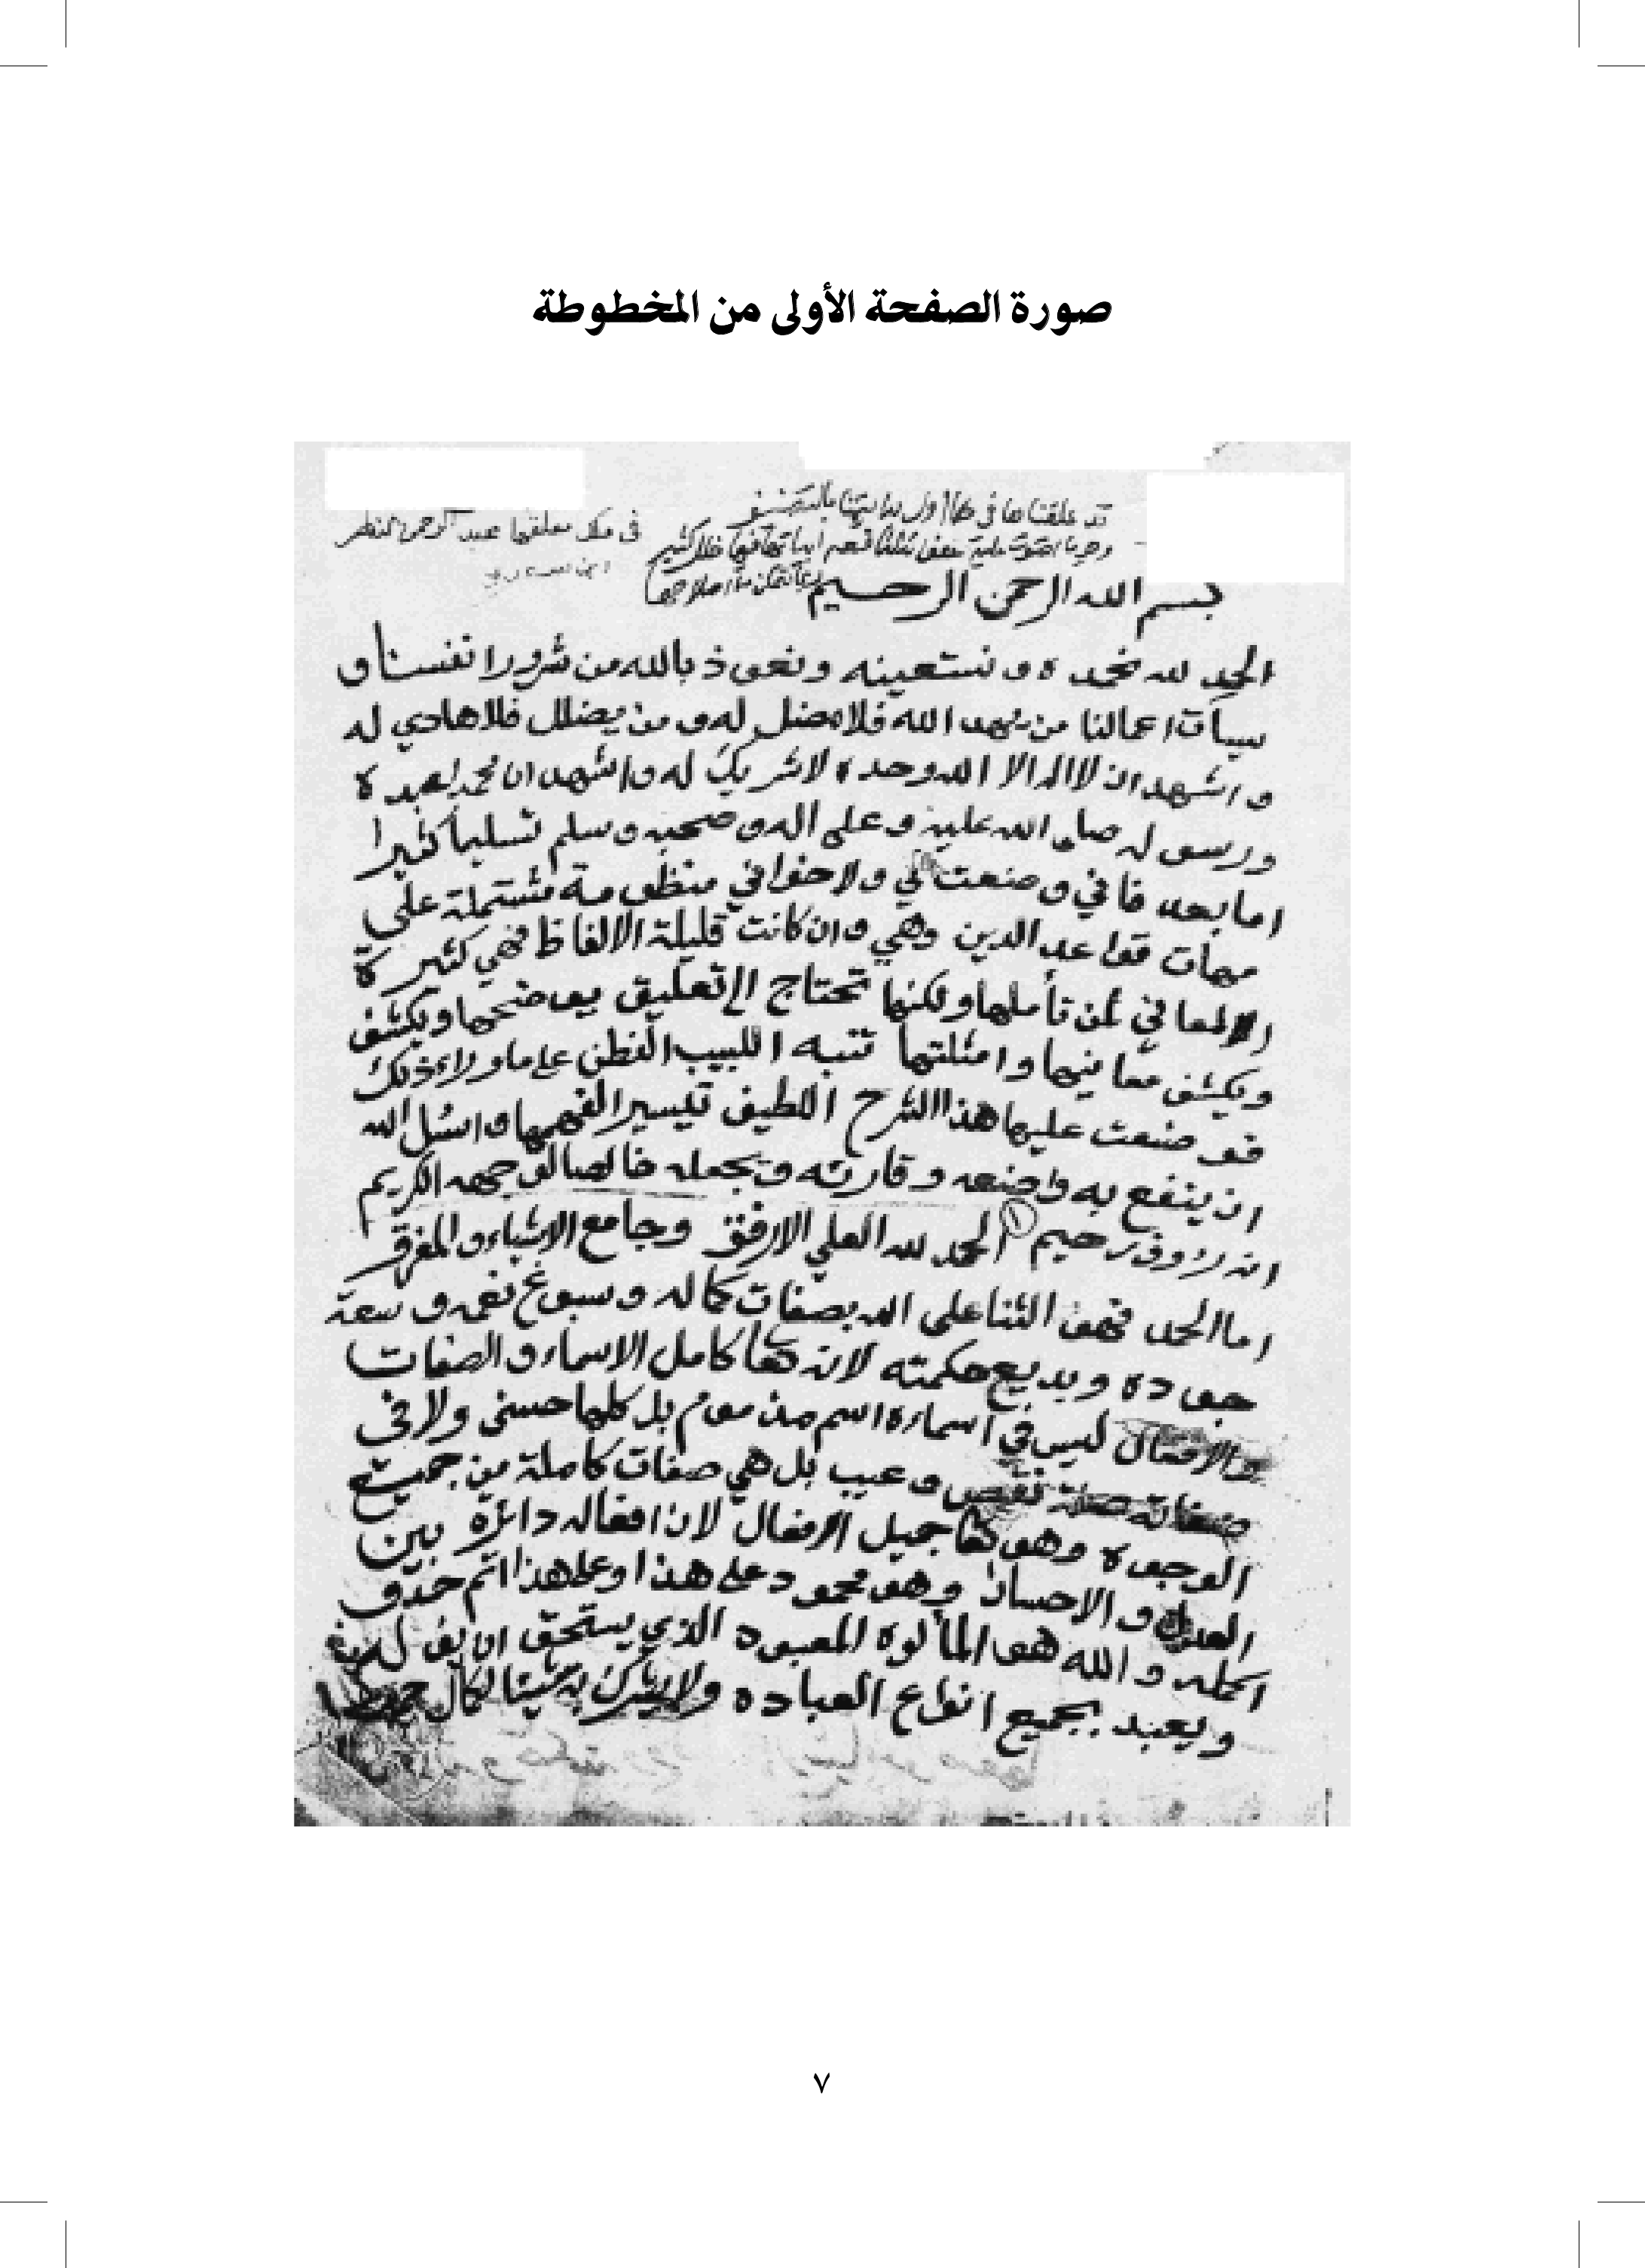 صورة الصفحة الأولى من المخطوطة
قد علقناها في
في ملك معلقها عبد الرحمن الناصر
ابن سعدي
بسم الله الرحمن الرحيم
الحمد لله نحمده ونستعينه ونعوذ بالله من شرور انفسنا و
سيأت اعمالنا من يهد الله فلا مضل له ومن يضلل فلا هادي له
واشهد ان لا اله الا الله وحده لا شريك له واشهد ان محمدا عبده
ورسوله صلى الله عليه وعلى اله وصحبه وسلم تسليما كثيرا
اما بعد فاني وضعت لي ولاخواني منظومة مشتملة على
مهمات قواعد الدين وهي وان كانت قليلة الالفاظ فهي كثيرة
المعاني لمن تأملها ولكنها تحتاج الى تعليق يوضحها ويكشف
ويكشف معانيها وامثلتها تنبه اللبيب الفطن على ما وراء ذلك
فوضعت عليها هذا الشرح اللطيف تيسيرا لفهمها واسئل الله
ان ينفع به واضعه وقارئه ويجعله خالصا لوجهه الكريم
انه رؤوف رحيم ١ الحمد لله العلي الارفق وجامع الاشياء والمفرق
اما الحمد فهو الثنا على الله بصفات كماله وسبوغ نعمه وسعة
جوده وبديع حكمته لانه تعا كامل الاسماء والصفات
والافعال ليس في اسمائه اسم مذموم بل كلها حسنى ولا في
صفاته صفة نقص وعيب بل هي صفات كاملة من جميع
الوجوه وهو تعا جميل الافعال لان افعاله دائرة بين
العدل والاحسان وهو محمود على هذا وعلى هذا اتم حمد و
اكمله والله هو المألوه المعبود الذي يستحق ان يؤله
ويعبد بجميع انواع العباده ولا يشرك به شيئا لكمال
٧